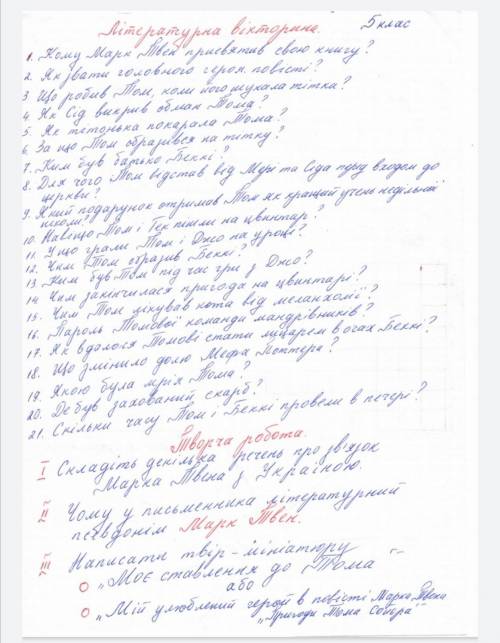 Літературна вікторина. 5 клас
1. Кому Марк Твен присвятив свою книгу?
2. Як звати головного героя повісті?
3. Що робив Том, коли його шукала тітка?
4. Як Сід викрив обман Тома?
5. Як тітонька покарала Тома?
6. За що Том образився на тітку?
7. Ким був батько Беккі?
8. Для чого Том відстав від Мері та Сіда перед входом до
церкви?
9. Який подарунок отримав Том як кращий учень недільної
школи?
10. Навіщо Том і Гек пішли на цвинтар?
11. У що грали Том і Джо на уроці?
12. Чим Том образив Беккі?
13. Ким був Том під час гри з Джо?
14. Чим закінчилася пригода на цвинтарі?
15. Чим Том лікував кота від меланхолії?
16. Пароль Томової команди мандрівників?
17. Як вдалося Томові стати лицарем в очах Беккі?
18. Що змінило долю Мефа Поттера?
19. Якою була мрія Тома?
20. Де був захований скарб?
21. Скільки часу Том і Беккі провели в печері?
Творча робота.
I Складіть декілька речень про зв'язок
Марка Твена з Україною.
II Чому у письменника літературний
псевдонім Марк Твен.
III Написати твір-мініатюру
"Моє ставлення до Тома"
або
"Мій улюблений герой в повісті Марка Твена
"Пригоди Тома Сойєра"